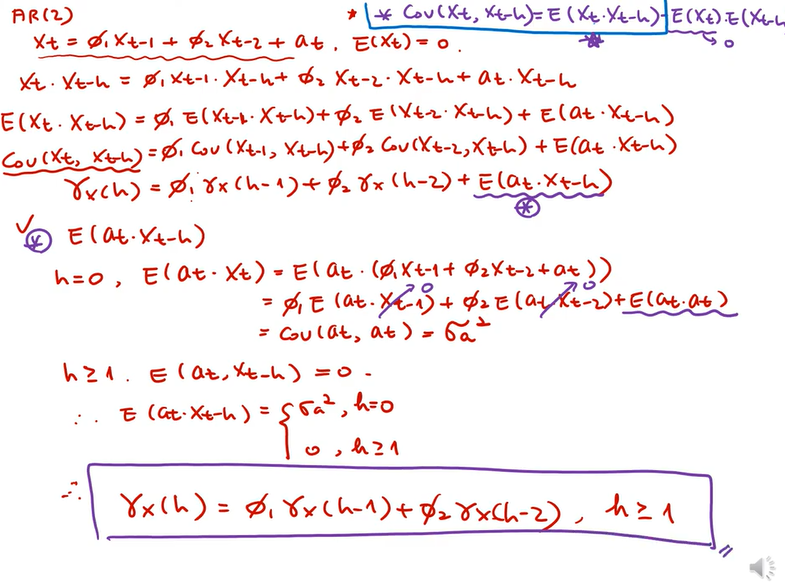 AR(2)
* * Cov(Xt, Xt-h) = E(Xt·Xt-h) - E(Xt)·E(Xt-h
* → 0
Xt = ϕ₁Xt-1 + ϕ₂Xt-2 + at, E(Xt) = 0.
Xt·Xt-h = ϕ₁Xt-1·Xt-h + ϕ₂ Xt-2·Xt-h + at·Xt-h
E(Xt·Xt-h) = ϕ₁ E(Xt-1·Xt-h) + ϕ₂ E(Xt-2·Xt-h) + E(at·Xt-h)
Cov(Xt, Xt-h) = ϕ₁ Cov(Xt-1, Xt-h) + ϕ₂ Cov(Xt-2, Xt-h) + E(at·Xt-h)
γx(h) = ϕ₁ γx(h-1) + ϕ₂ γx(h-2) + E(at·Xt-h)
*
✓ * E(at·Xt-h)
h=0, E(at·Xt) = E(at·(ϕ₁Xt-1 + ϕ₂Xt-2 + at))
= ϕ₁ E(at·Xt-1) 0 + ϕ₂ E(at·Xt-2) 0 + E(at·at)
= Cov(at, at) = σa²
h ≥ 1. E(at, Xt-h) = 0.
∴ E(at·Xt-h) = { σa², h=0
0, h ≥ 1
∴ γx(h) = ϕ₁ γx(h-1) + ϕ₂ γx(h-2), h ≥ 1 //